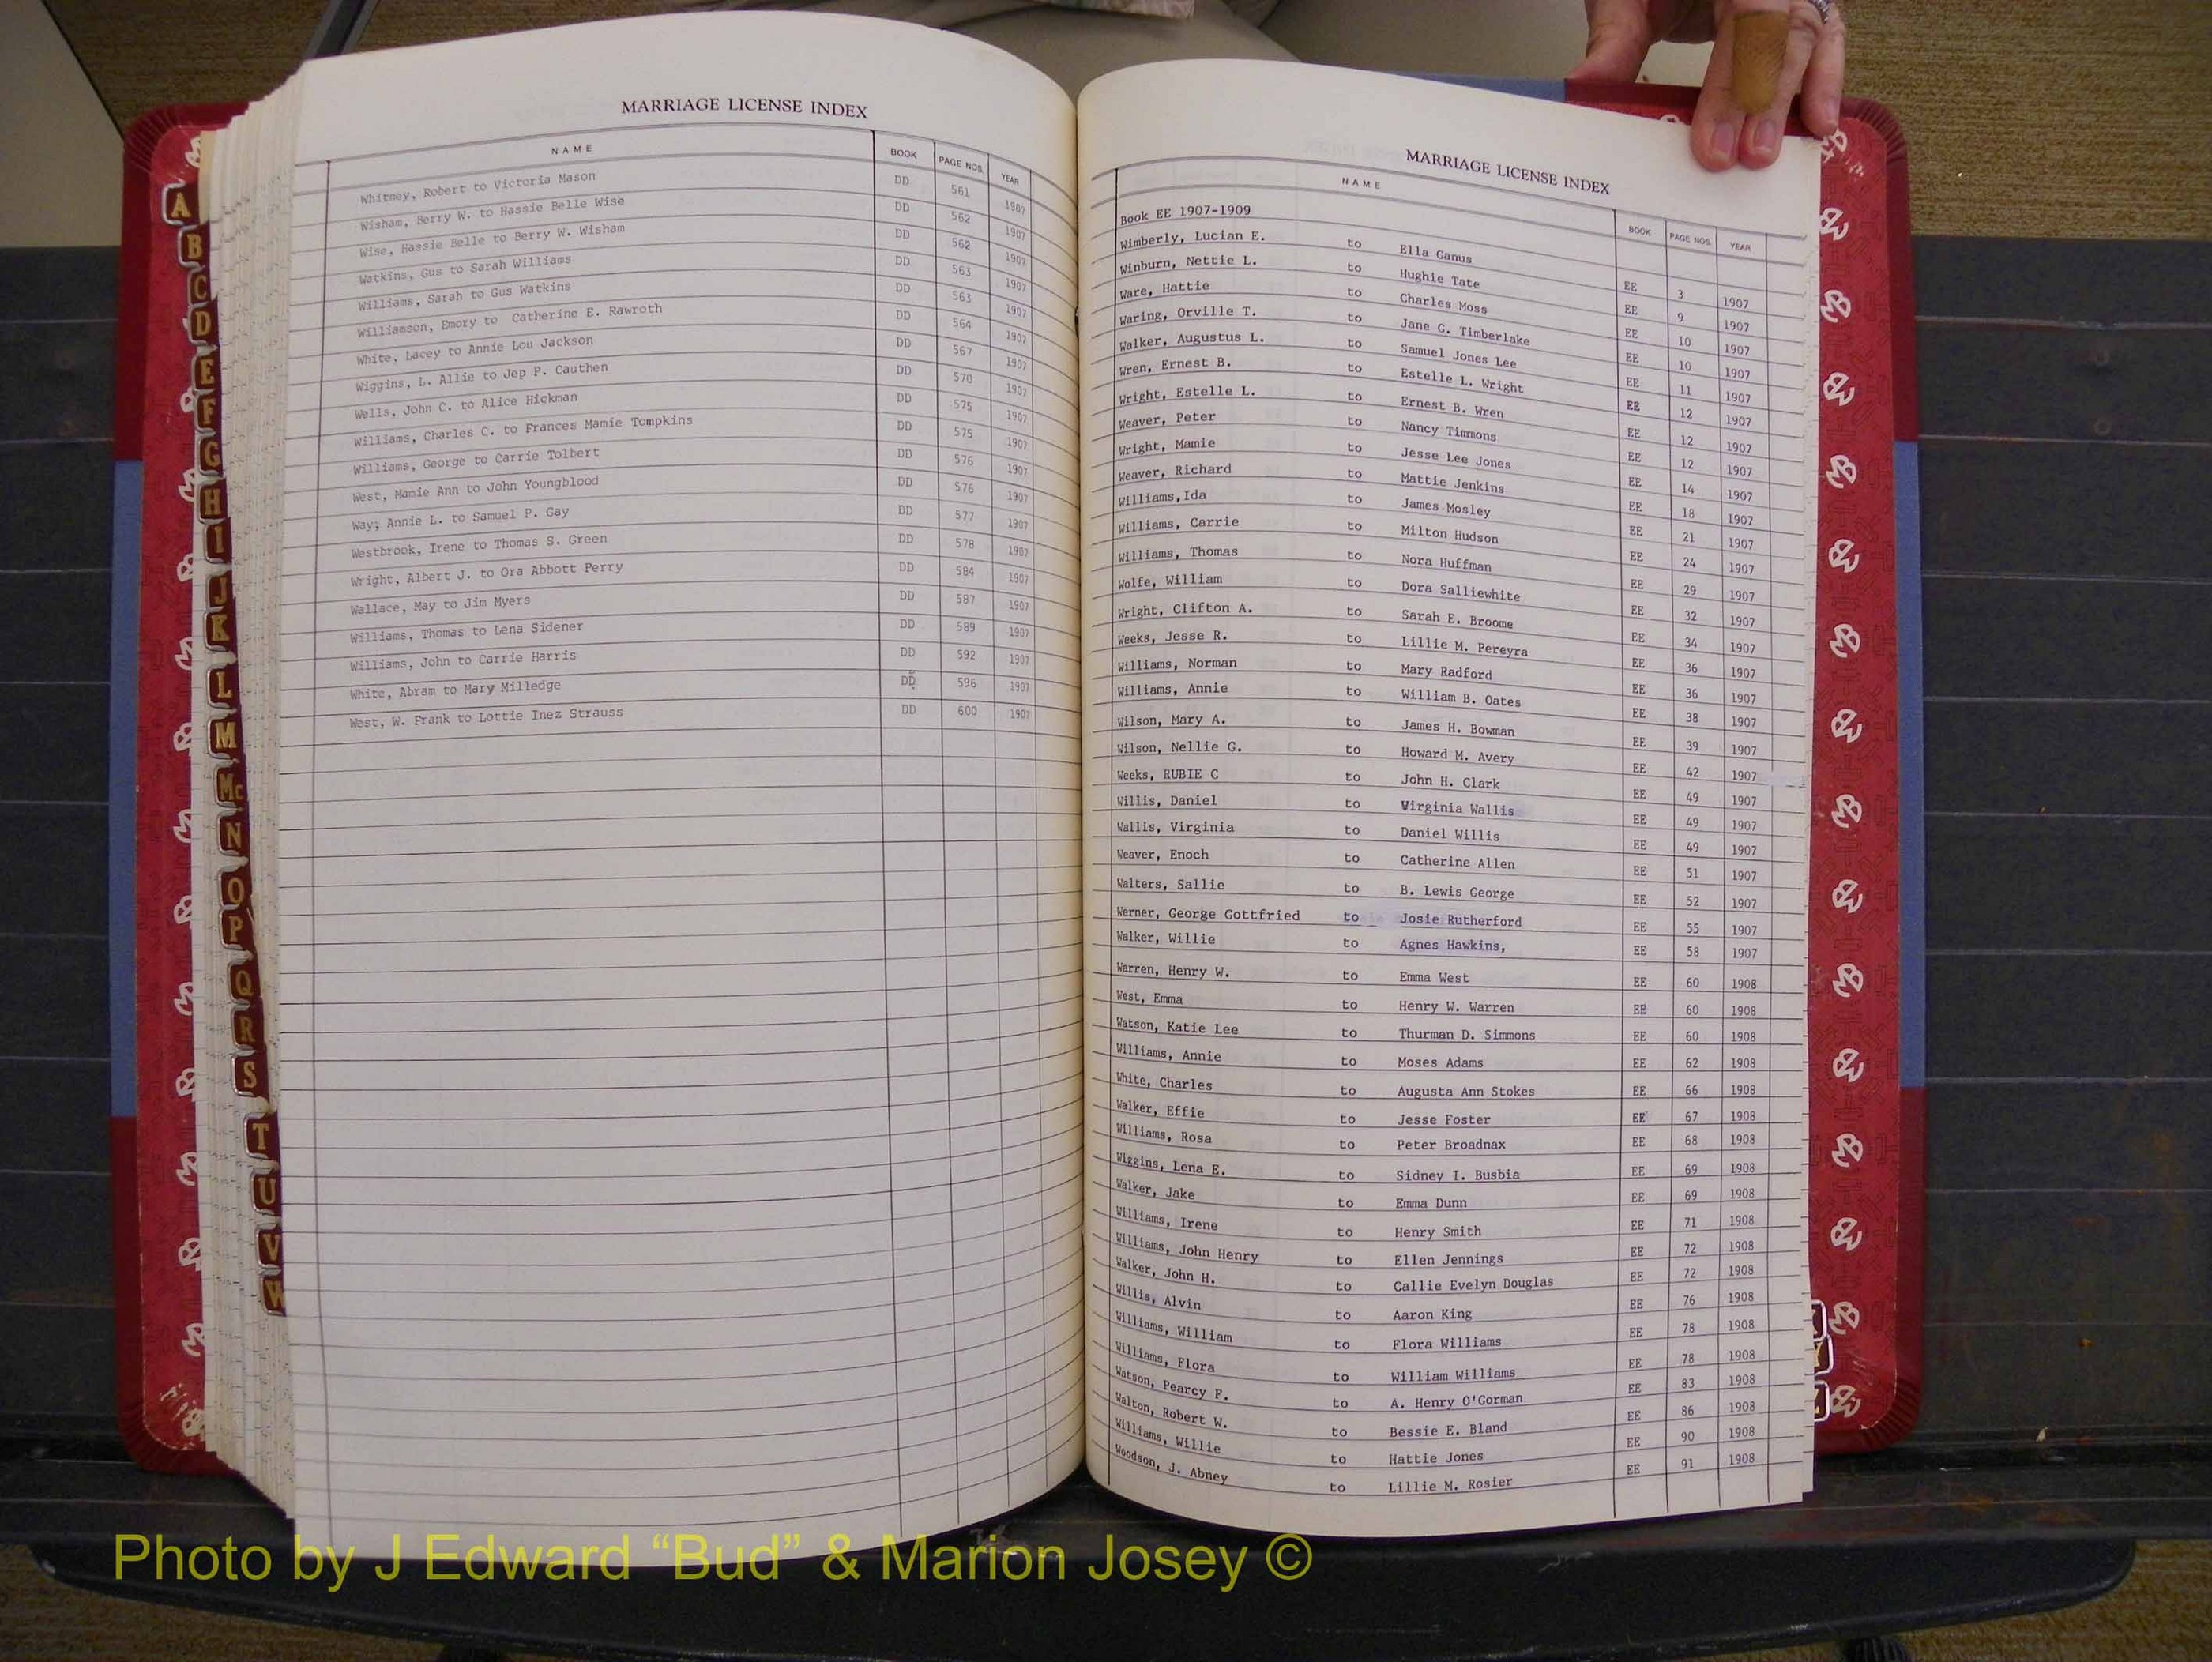 MARRIAGE LICENSE INDEX
NAME BOOK PAGE NOS. YEAR
Whitney, Robert to Victoria Mason DD 561 1907
Wisham, Berry W. to Hassie Belle Wise DD 562 1907
Wise, Hassie Belle to Berry W. Wisham DD 562 1907
Watkins, Gus to Sarah Williams DD 563 1907
Williams, Sarah to Gus Watkins DD 563 1907
Williamson, Emory to Catherine E. Rawroth DD 564 1907
White, Lacey to Annie Lou Jackson DD 567 1907
Wiggins, L. Allie to Jep P. Cauthen DD 570 1907
Wells, John C. to Alice Hickman DD 575 1907
Williams, Charles C. to Frances Mamie Tompkins DD 575 1907
Williams, George to Carrie Tolbert DD 576 1907
West, Mamie Ann to John Youngblood DD 576 1907
Way, Annie L. to Samuel P. Gay DD 577 1907
Westbrook, Irene to Thomas S. Green DD 578 1907
Wright, Albert J. to Ora Abbott Perry DD 584 1907
Wallace, May to Jim Myers DD 587 1907
Williams, Thomas to Lena Sidener DD 589 1907
Williams, John to Carrie Harris DD 592 1907
White, Abram to Mary Milledge DD 596 1907
West, W. Frank to Lottie Inez Strauss DD 600 1907
A
B
C
D
E
F
G
H
I
J
K
L
M
Mc
N
O
P
Q
R
S
T
U
V
W
MARRIAGE LICENSE INDEX
NAME BOOK PAGE NOS. YEAR
Book EE 1907-1909
Wimberly, Lucian E. to Ella Ganus EE 3 1907
Winburn, Nettie L. to Hughie Tate EE 9 1907
Ware, Hattie to Charles Moss EE 10 1907
Waring, Orville T. to Jane G. Timberlake EE 10 1907
Walker, Augustus L. to Samuel Jones Lee EE 11 1907
Wren, Ernest B. to Estelle L. Wright EE 12 1907
Wright, Estelle L. to Ernest B. Wren EE 12 1907
Weaver, Peter to Nancy Timmons EE 12 1907
Wright, Mamie to Jesse Lee Jones EE 14 1907
Weaver, Richard to Mattie Jenkins EE 18 1907
Williams,Ida to James Mosley EE 21 1907
Williams, Carrie to Milton Hudson EE 24 1907
Williams, Thomas to Nora Huffman EE 29 1907
Wolfe, William to Dora Salliewhite EE 32 1907
Wright, Clifton A. to Sarah E. Broome EE 34 1907
Weeks, Jesse R. to Lillie M. Pereyra EE 36 1907
Williams, Norman to Mary Radford EE 36 1907
Williams, Annie to William B. Oates EE 38 1907
Wilson, Mary A. to James H. Bowman EE 39 1907
Wilson, Nellie G. to Howard M. Avery EE 42 1907
Weeks, RUBIE C to John H. Clark EE 49 1907
Willis, Daniel to Virginia Wallis EE 49 1907
Wallis, Virginia to Daniel Willis EE 49 1907
Weaver, Enoch to Catherine Allen EE 51 1907
Walters, Sallie to B. Lewis George EE 52 1907
Werner, George Gottfried to Josie Rutherford EE 55 1907
Walker, Willie to Agnes Hawkins, EE 58 1907
Warren, Henry W. to Emma West EE 60 1908
West, Emma to Henry W. Warren EE 60 1908
Watson, Katie Lee to Thurman D. Simmons EE 60 1908
Williams, Annie to Moses Adams EE 62 1908
White, Charles to Augusta Ann Stokes EE 66 1908
Walker, Effie to Jesse Foster EE 67 1908
Williams, Rosa to Peter Broadnax EE 68 1908
Wiggins, Lena E. to Sidney I. Busbia EE 69 1908
Walker, Jake to Emma Dunn EE 69 1908
Williams, Irene to Henry Smith EE 71 1908
Williams, John Henry to Ellen Jennings EE 72 1908
Walker, John H. to Callie Evelyn Douglas EE 72 1908
Willis, Alvin to Aaron King EE 76 1908
Williams, William to Flora Williams EE 78 1908
Williams, Flora to William Williams EE 78 1908
Watson, Pearcy F. to A. Henry O'Gorman EE 83 1908
Walton, Robert W. to Bessie E. Bland EE 86 1908
Williams, Willie to Hattie Jones EE 90 1908
Woodson, J. Abney to Lillie M. Rosier EE 91 1908
Photo by J Edward “Bud” & Marion Josey ©